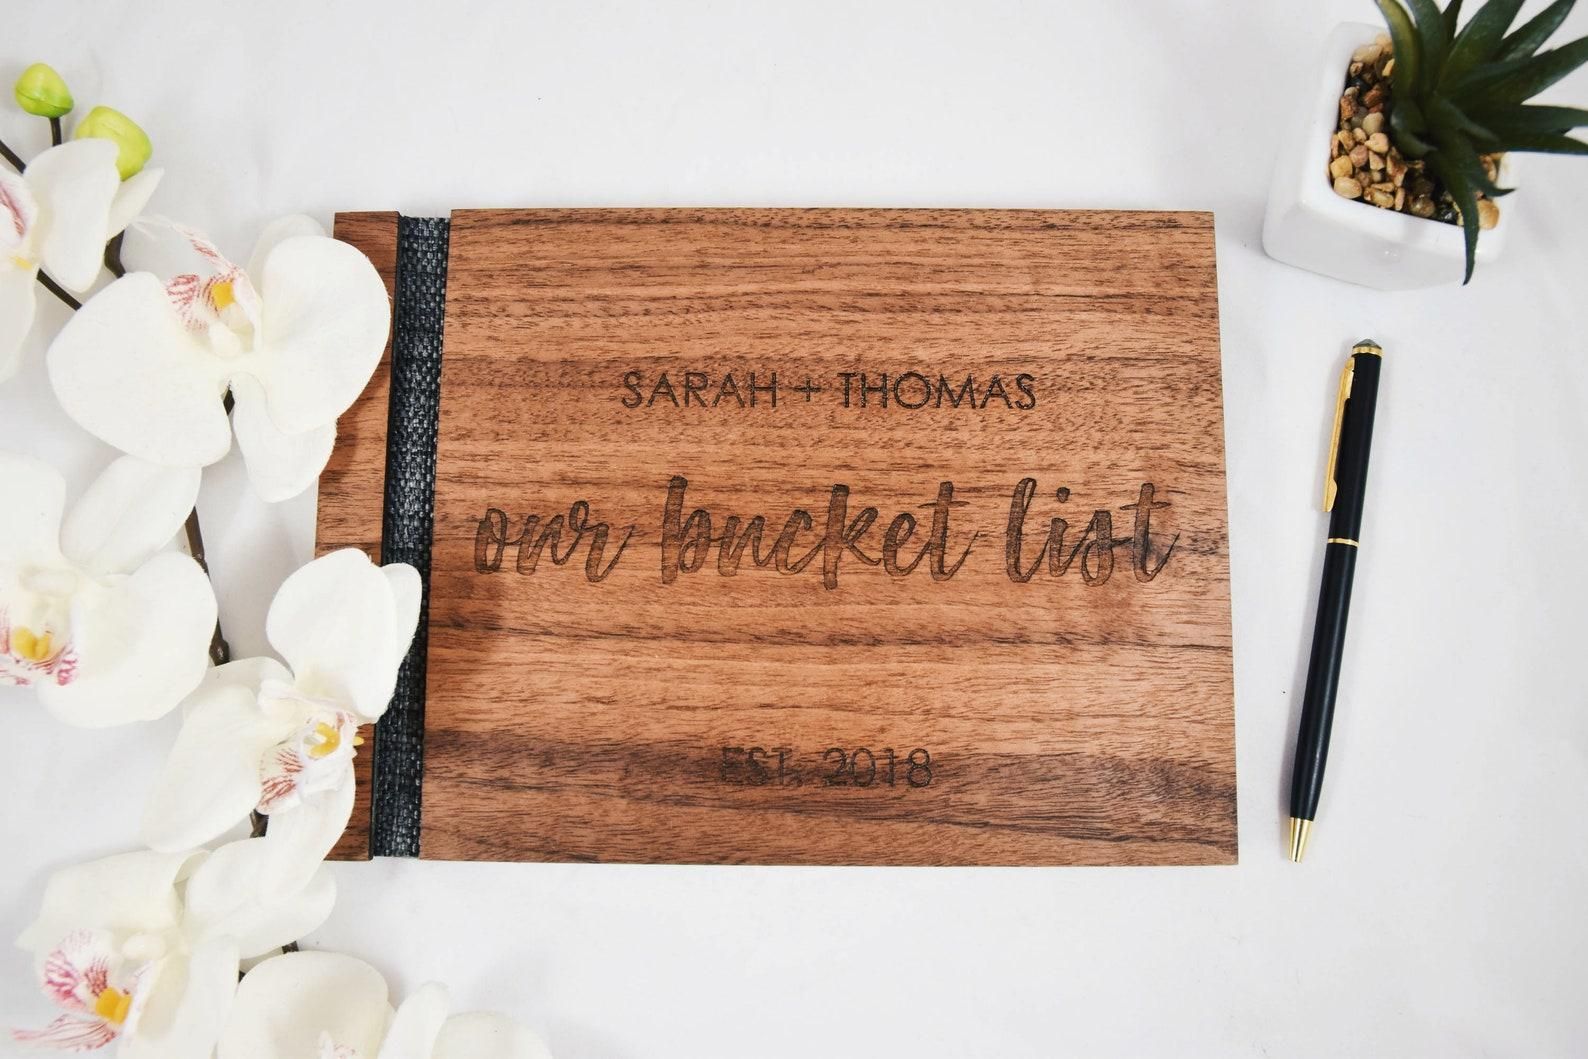 SARAH + THOMAS
our bucket list
EST. 2018